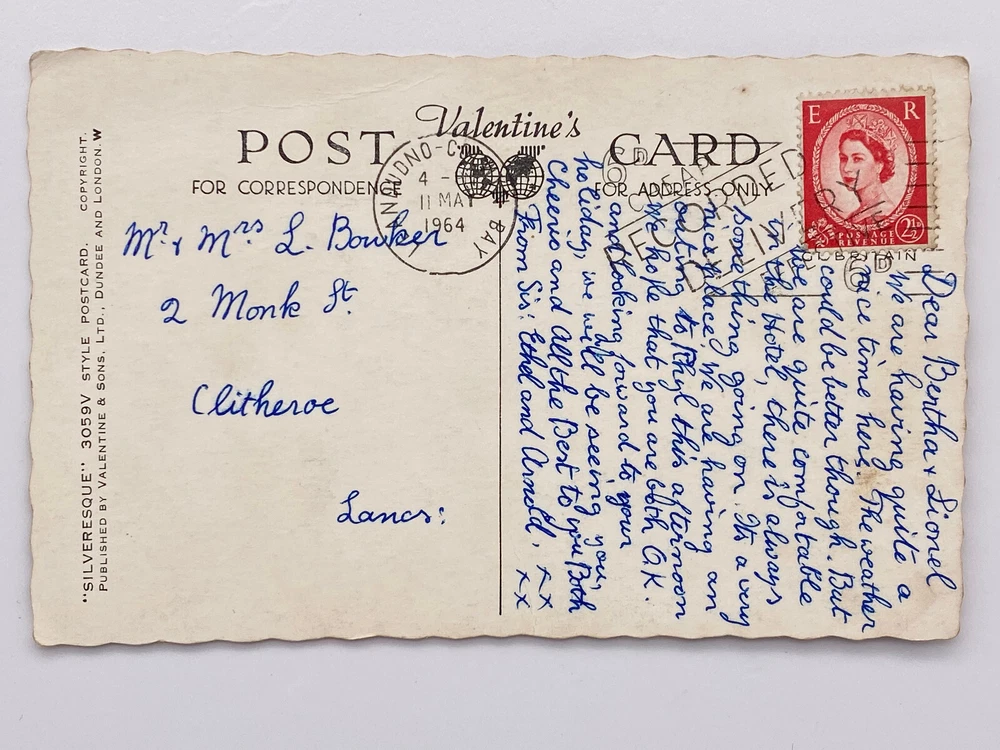 Valentine's
POST CARD
FOR CORRESPONDENCE
FOR ADDRESS ONLY
"SILVERESQUE" 3059V STYLE POSTCARD. COPYRIGHT.
PUBLISHED BY VALENTINE & SONS, LTD., DUNDEE AND LONDON. W
LLANDUDNO-COLWYN BAY
4 -
11 MAY
1964
E R
POSTAGE
REVENUE
2½D
6D
RECORDED
DELIVERY
6D
Mr. & Mrs L. Bowker
2 Monk St.
Clitheroe
Lancs:
Dear Bertha & Lionel
We are having quite a
nice time here. The weather
could be better though. But
we are quite comfortable
in the Hotel, there is always
something going on. It's a very
nice place. We are having an
outing to Rhyl this afternoon
We hope that you are both O.K.
and looking forward to your
holiday, we will be seeing you,
Cheerio and All the Best to you Both
From Sis: Ethel and Arnold. xx
xx